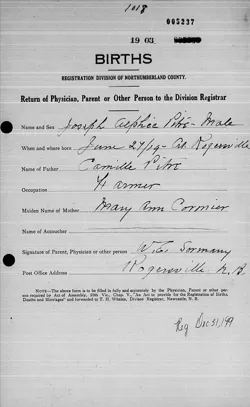 1018
005237
1903
BIRTHS
REGISTRATION DIVISION OF NORTHUMBERLAND COUNTY.
Return of Physician, Parent or Other Person to the Division Registrar
Name and Sex Joseph Alphée Pitre - Male
When and where born June 27/19- At Rogersville
Name of Father Camille Pitre
Occupation Farmer
Maiden Name of Mother Mary Ann Cormier
Name of Accoucher
Signature of Parent, Physician or other person Sormany
Post Office Address Rogersville N.B.
NOTE.—The above form is to be filled in fully and accurately by the Physician, Parent or other person required by Act of Assembly, 50th Vic., Chap. V., "An Act to provide for the Registration of Births, Deaths and Marriages" and forwarded to Division Registrar, Newcastle, N. B.
Reg Dec 31,